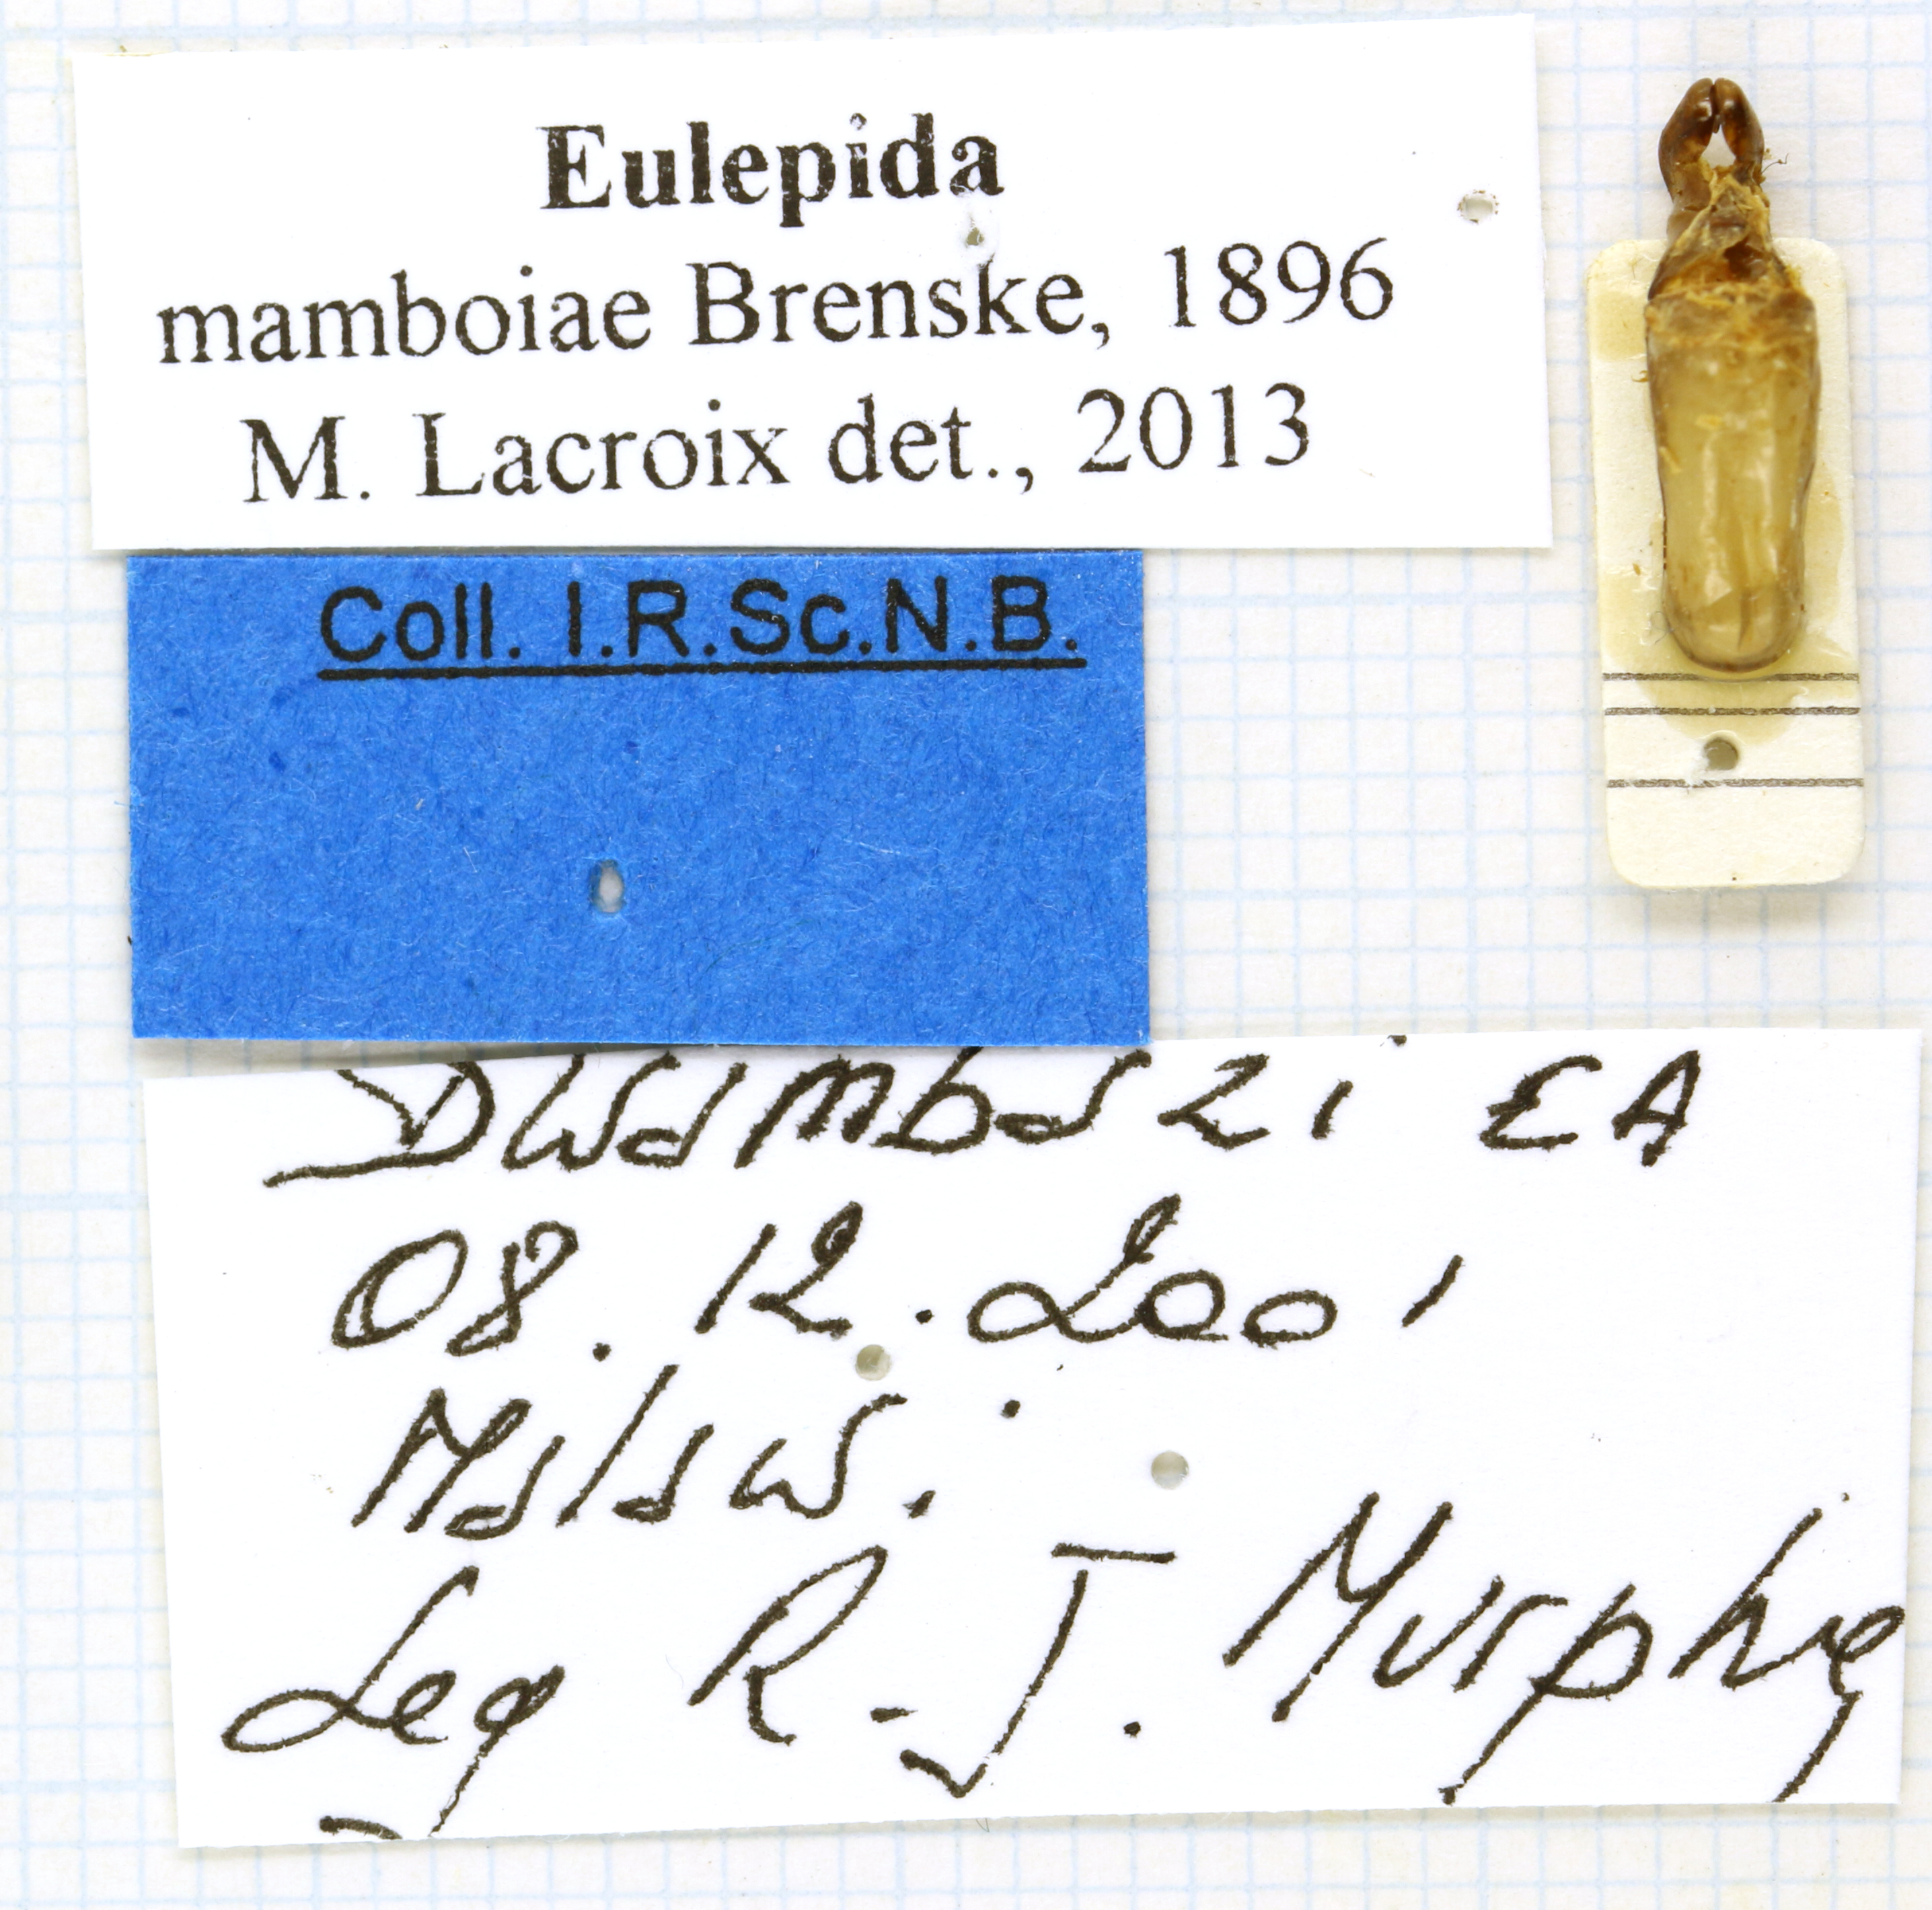 Eulepida
mamboiae Brenske, 1896
M. Lacroix det., 2013
Coll. I.R.Sc.N.B.
Dwambazi EA
08.12.2001
Malawi
Leg R.J. Murphy